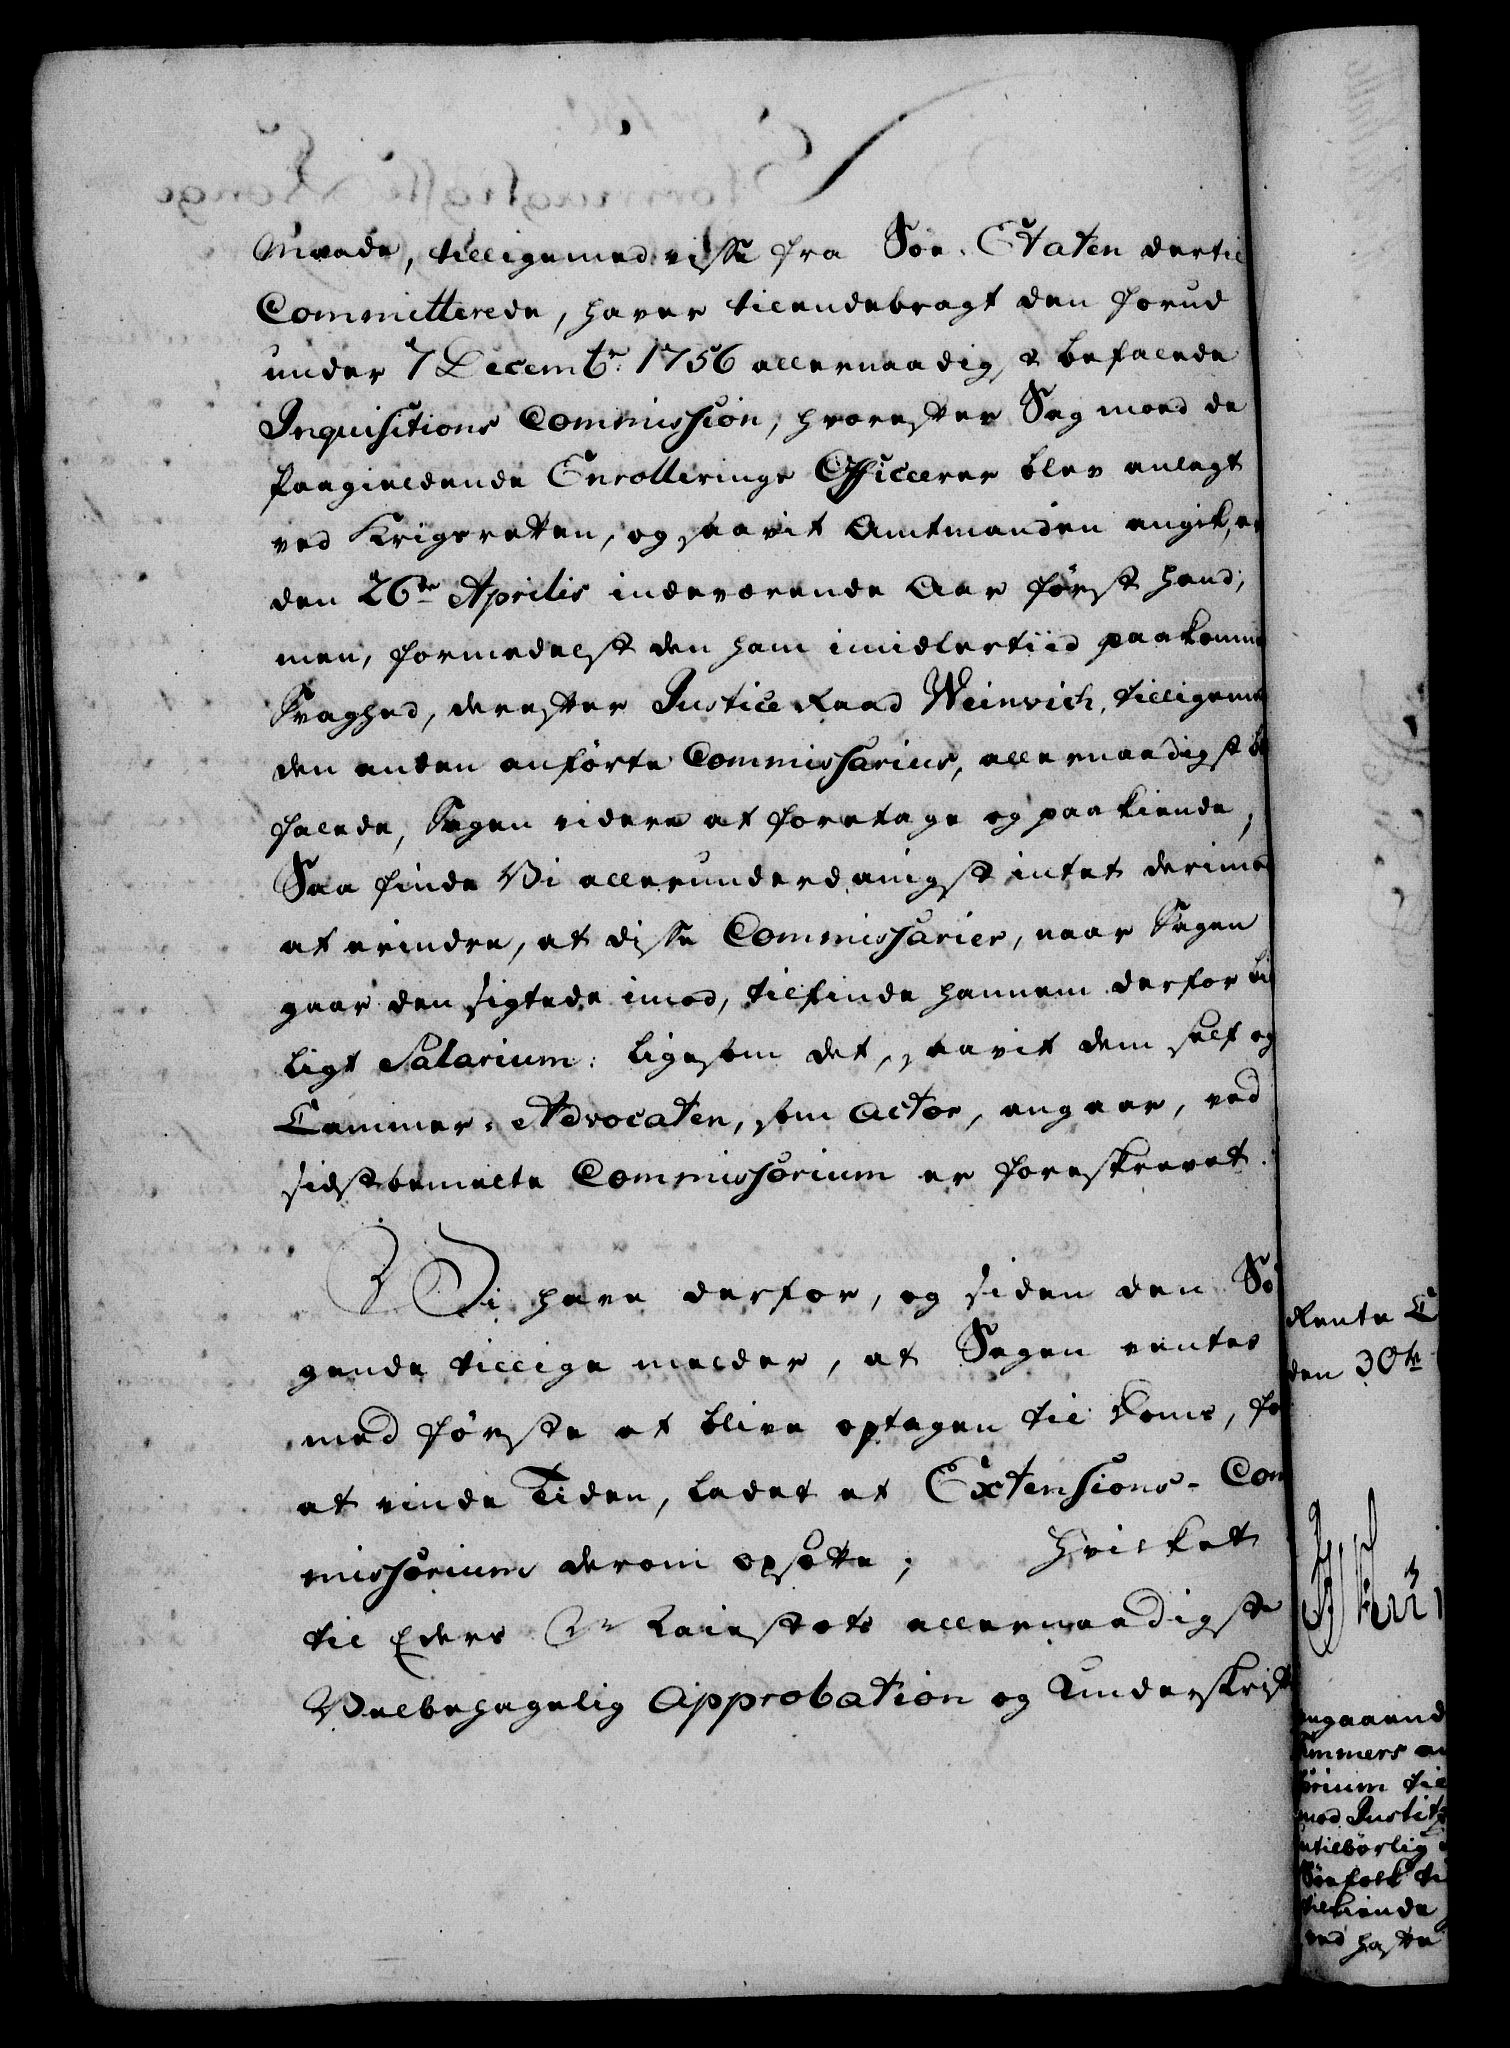 Maade, tilligemed visse fra Søe-Etaten dertil
Committerede, haver tilendebragt den forud
under 7 Decembr: 1756 allernaadigst befalede
Inquisitions Commission, hvorefter Sag mod de
paagieldende Enrollerings Officerer blev anlagt
ved Krigsretten, og saavit Amtmanden angik, er
den 26de Aprilis indeværende Aar først hand,
men, formedelst den ham imidlertiid paakomne
Svaghed, derefter Justice Raad Weinvich, tilligemed
den anden anførte Commissarius, allernaadigst be
falede, Sagen videre at foretage og paakiende;
Saa finde Vi allerunderdanigst intet derimod
at erindre, at disse Commissarier, naar Sagen
gaar den sigtede imod, tilfinde hannem derfor bil
ligt Salarium: ligesom det, saavit dem self og
Cammer-Advocaten, som Actor, angaar, ved
sidstbemelte Commissorium er foreskrevet.
Vi have derfor, og siden den Sø
gende tillige melder, at Sagen ventes
med første at blive optagen til Doms, for
at vinde Tiden, ladet et Extensions-Com
missorium derom opsætte; Hvilket
til Eders Mayestæts allernaadigste
Velbehagelig Approbation og Underskrift
Rente C
den 30te
angaaend
ammers
orium til
mod Justit
utilbørlig
Søefolk
tilkiende
ved hafte